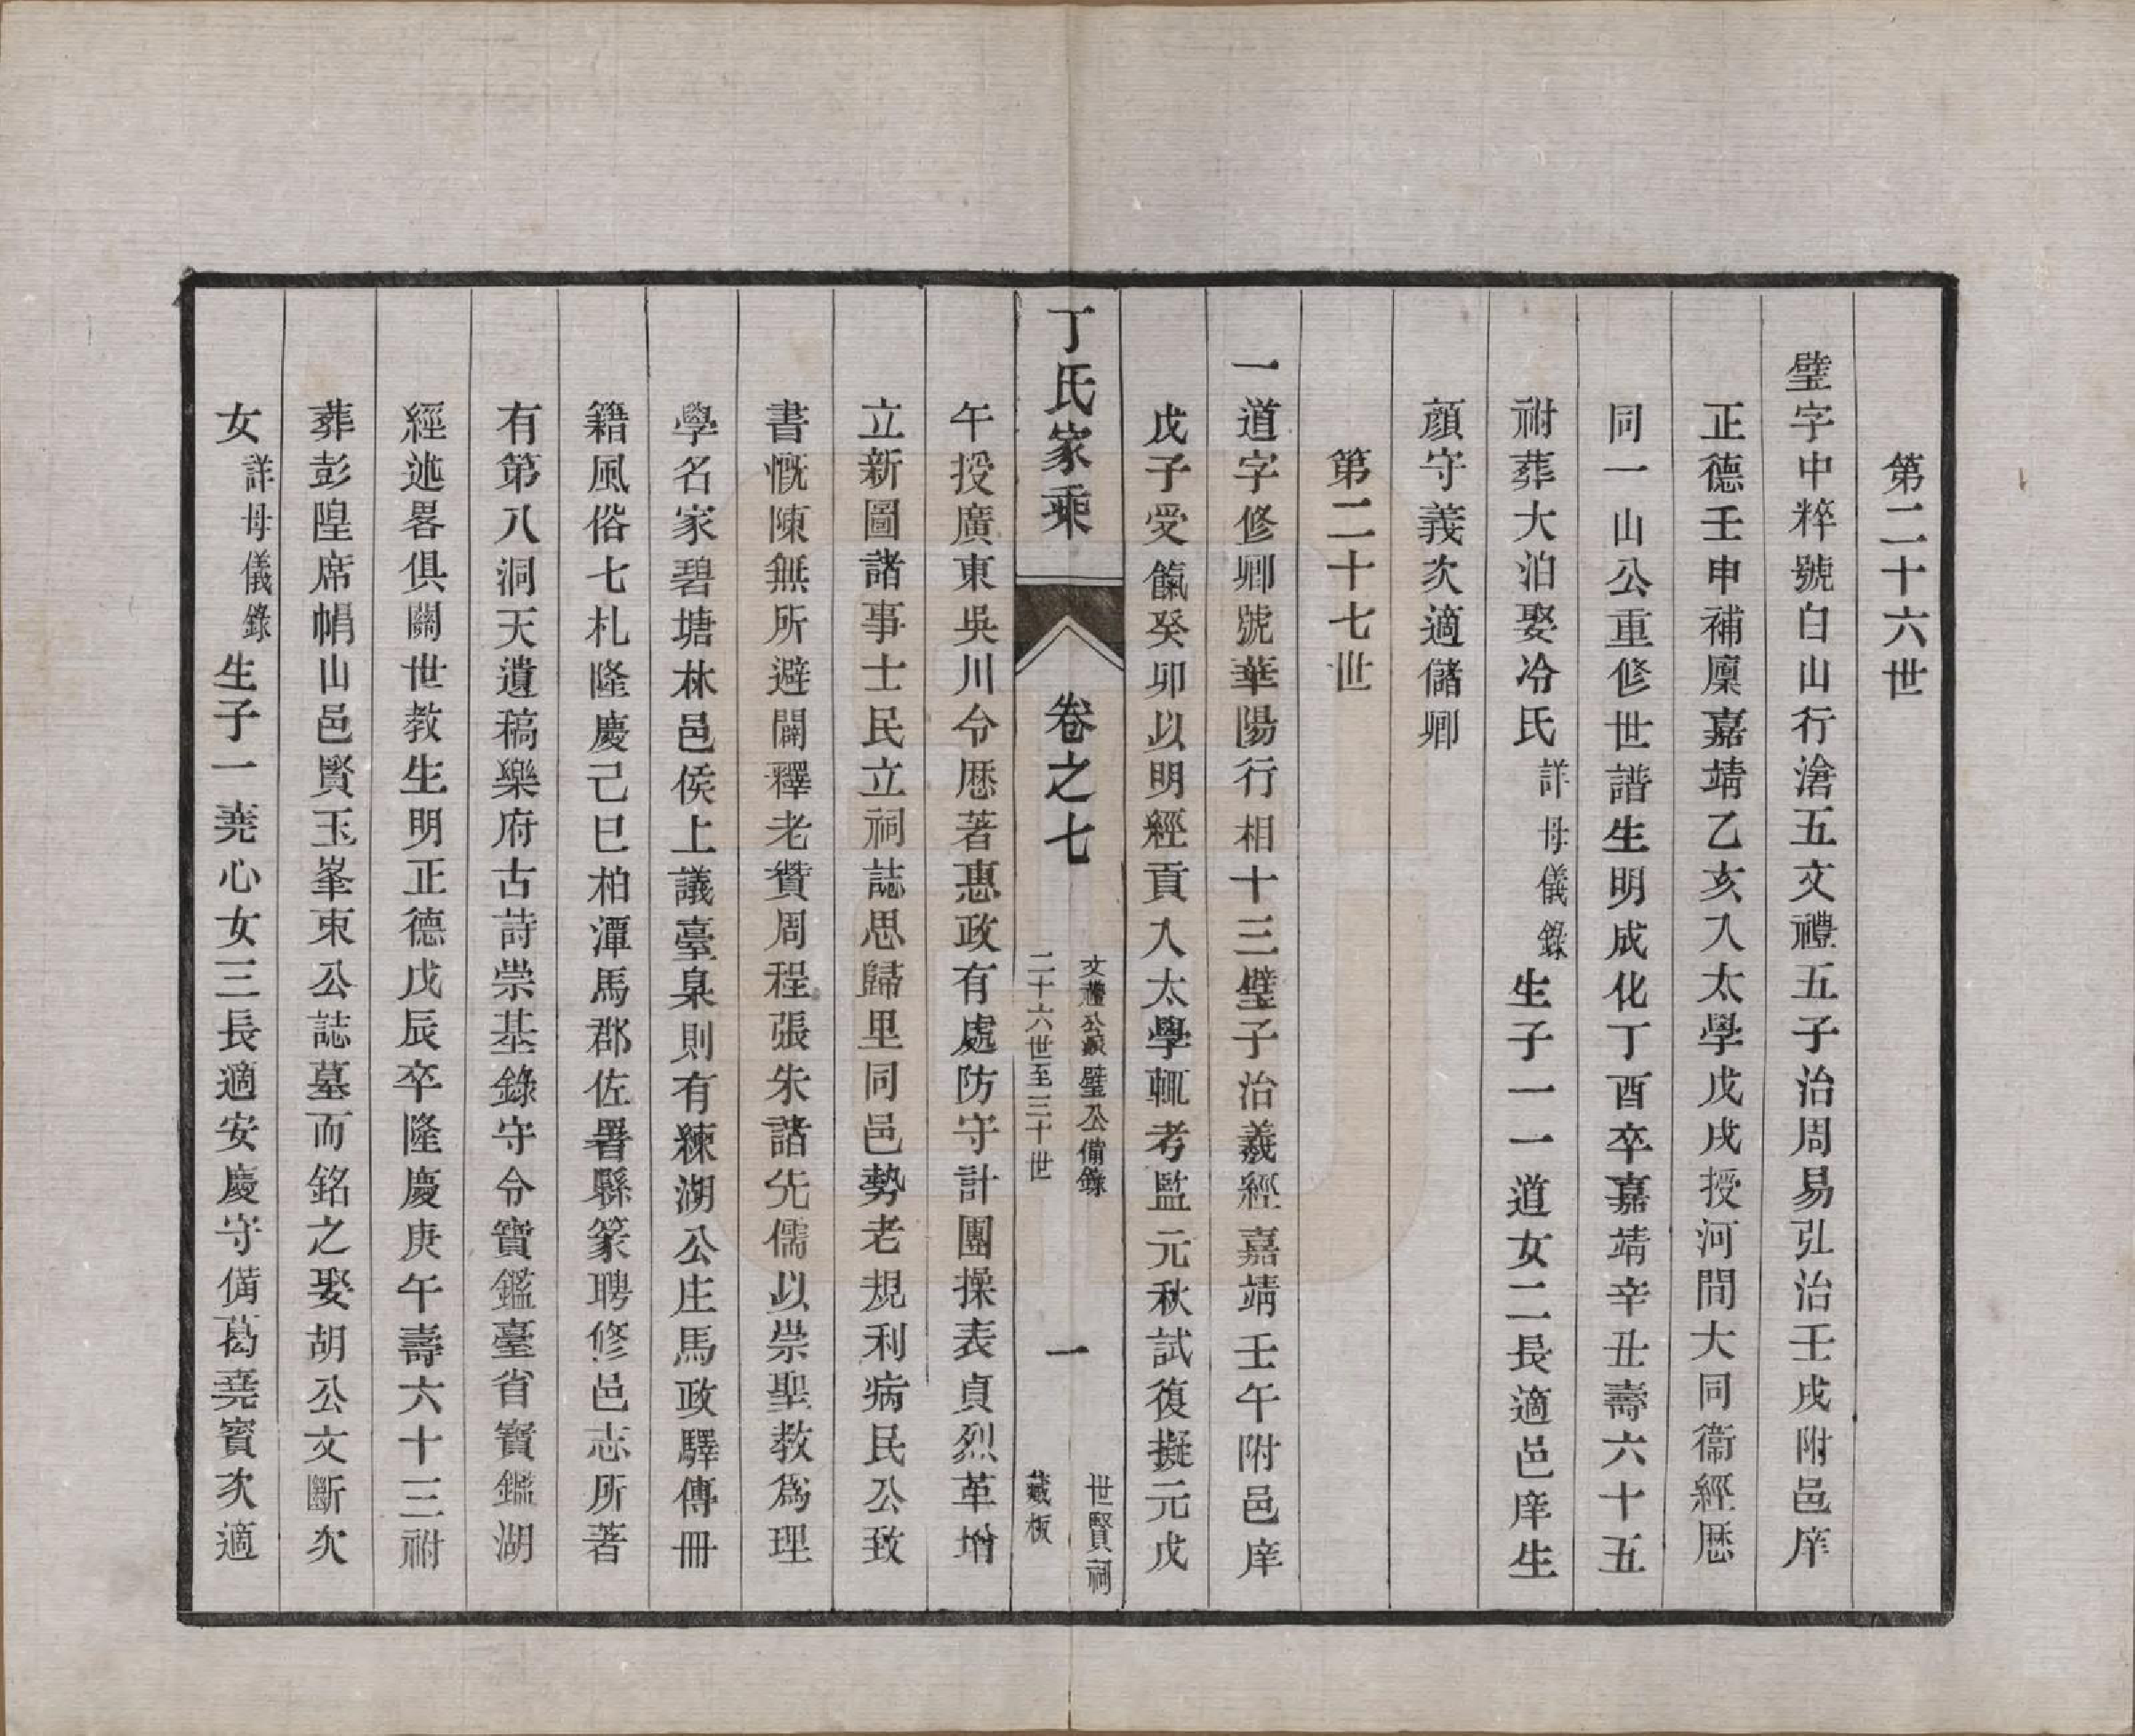 第二十六世
璧字中粹號白山行滄五文禮五子治周易弘治壬戌附邑庠
正德壬申補廩嘉靖乙亥入太學戊戌授河間大同衞經歷
同一山公重修世譜生明成化丁酉卒嘉靖辛丑壽六十五
祔葬大泊娶冷氏詳母儀錄生子一一道女二長適邑庠生
顏守義次適儲卿
第二十七世
一道字修卿號華陽行相十三璧子治羲經嘉靖壬午附邑庠
戊子受餼癸卯以明經貢入太學輒考監元秋試復擬元戊
丁氏家乘
卷之七
文禮公嵗璧公備錄
二十六世至三十世
一
世賢祠
藏板
午授廣東吳川令歷著惠政有處防守計團操表貞烈革增
立新圖諸事士民立祠誌思歸里同邑勢老規利病民公致
書慨陳無所避闢釋老贊周程張朱諸先儒以崇聖教爲理
學名家碧塘林邑侯上議臺臬則有練湖公庄馬政驛傳冊
籍風俗七札隆慶己巳柏潭馬郡佐署縣篆聘修邑志所著
有第八洞天遺稿樂府古詩崇基錄守令寶鑑臺省寶鑑湖
經述畧俱關世教生明正德戊辰卒隆慶庚午壽六十三祔
葬彭隍席帽山邑賢玉峯東公誌墓而銘之娶胡公文斷次
女詳母儀錄生子一堯心女三長適安慶守備葛堯賓次適